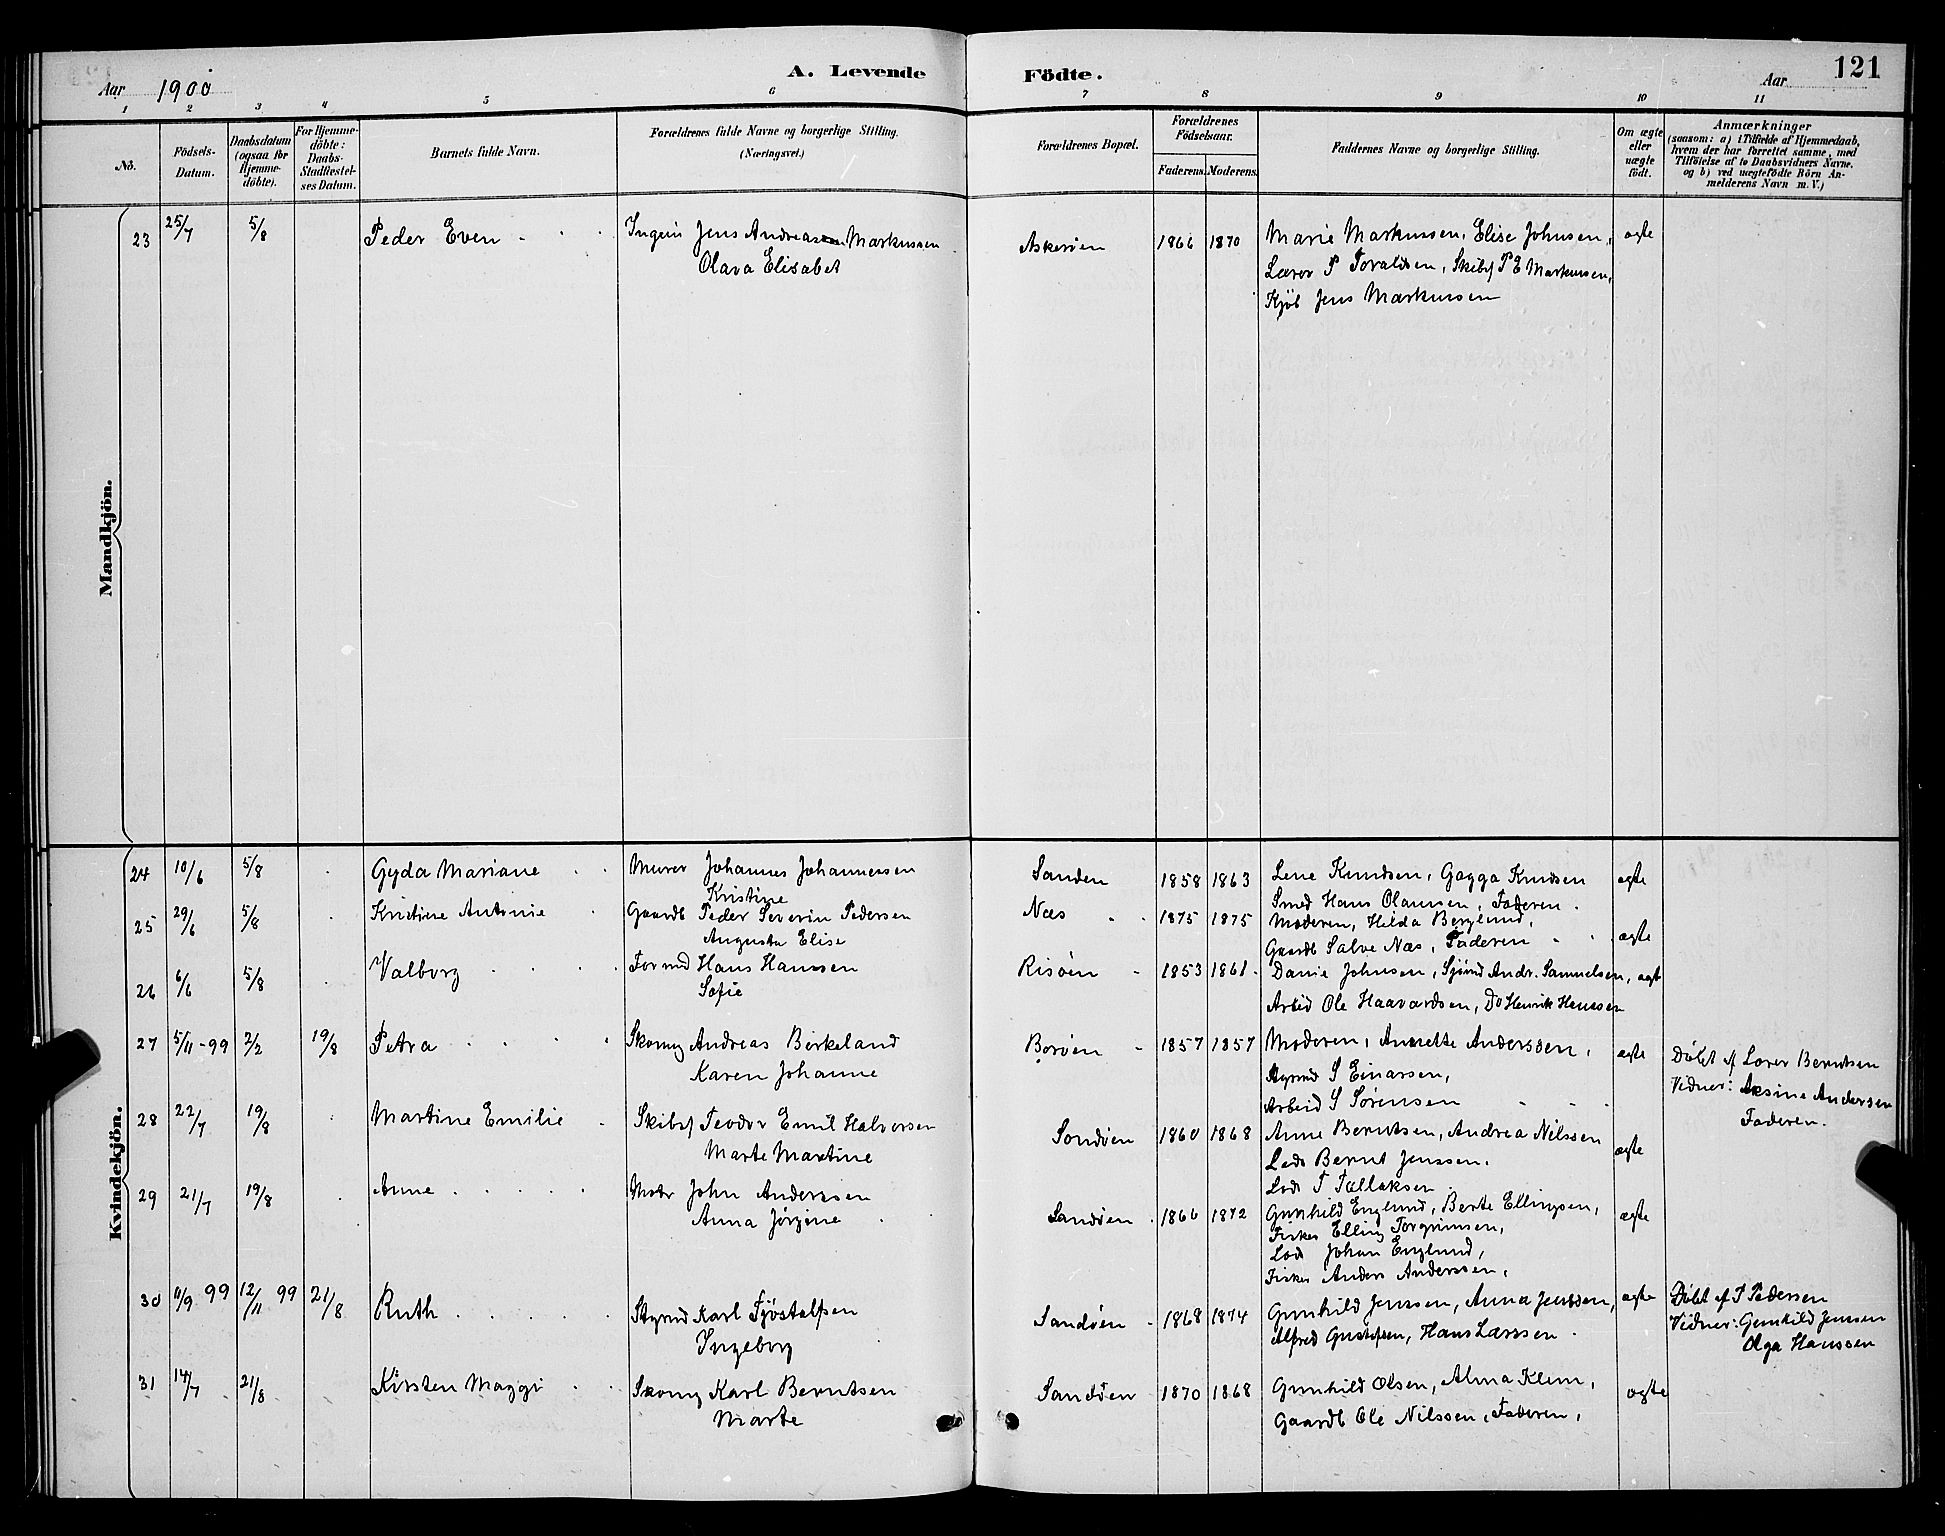 Aar 1900
A. Levende
Födte.
Aar
121
1 2 3 4 5 6 7 8 9 10 11
No.
Födsels-
Datum.
Daabsdatum
(ogsaa for
Hjemme-
döbte).
For Hjemme-
döbte:
Daabs-
Stadfæstel-
ses Datum.
Barnets fulde Navn.
Forældrenes fulde Navne og borgerlige Stilling.
(Næringsvei.)
Forældrenes Bopæl.
Forældrenes
Födselsaar.
Faderens. Moderens.
Faddernes Navne og borgerlige Stilling.
Om ægte
eller
uægte
födt.
Anmærkninger
(saasom: a) i Tilfælde af Hjemmedaab,
hvem der har forrettet samme, med
Tilföielse af to Daabsvidners Navne,
og b) ved uægtefödte Börn An-
melderens Navn m. V.)
Mandkjön.
23 25/7 5/8 Peder Even Ingeiń Jens Andreas Markussen Askerøen 1866 1870 Marie Markussen, Elise Johnsen, ægte
Olava Elisabet Lærer P Tovaldsen, Skibsf P E Markussen,
Kjöb Jens Markussen
Kvindekjön.
24 10/6 5/8 Gyda Mariane Murer Johannes Johannessen Sanden 1858 1863 Lene Knudsen, Gagga Knudsen ægte
Kristine Smed Hans Olaussen, Faderen.
25 29/6 5/8 Kristine Antonie Gaardb Peder Severin Pedersen Næs 1875 1875 Moderen, Hilda Berglund,
Augusta Elise Gaardb Salve Næs, Faderen ægte
26 6/6 5/8 Valborg Formd Hans Hanssen Risøen 1853 1861 Danie Johnsen, Sjömd Andr. Samuelsen, ægt
Sofie Arbeid Ole Haavardsen, Do Henrik Henssen
27 5/11-99 2/2 19/8 Petra Skomg Andreas Birkeland Borøen 1857 1857 Moderen, Annette Anderssen, ægte Döbt af Lærer Berntsen
Karen Johanne Styrmd S Einarsen, Vidner: Aksine Andersen
Arbeid S Sörensen Faderen.
28 22/7 19/8 Martine Emilie Skibsf Teodor Emil Halvorsen Sandøen 1860 1868 Anne Berntsen, Andrea Nilssen ægte
Marte Martine Lods Bernt Jenssen.
Lods T Tallaksen
29 21/7 19/8 Anne Matr John Anderssen Sandøen 1866 1872 Gunhild Englund, Berte Ellingsen, ægte
Anna Jørgine Fisker Elling Torgrimsen,
Lods Johan Englund,
Fisker Anders Anderssen,
30 11/9 99 12/11 99 21/8 Ruth Styrmd Karl Tjöstolfsen Sandøen 1868 1874 Gunhild Jenssen, Anna Jenssen, ægte Döbt af T Pedersen
Ingeborg Alfred Gustafsen, Hans Larssen. Vidner: Gunhild Jenssen
Olga Hanssen
31 14/7 21/8 Kirsten Maggi Skomg Karl Berntsen Sandøen 1870 1868 Gunhild Olsen, Alma Klem, ægte
Marte Gaardb Ole Nilssen, Faderen,